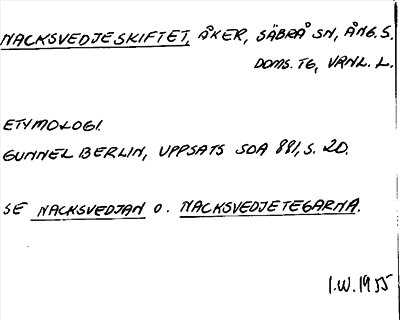 NACKSVEDJESKIFTET, ÅKER, SÄBRÅ SN, ÅNG. S.
DOMS. TG, VRNL. L.
ETYMOLOGI.
GUNNEL BERLIN, UPPSATS SOA 881, S. 20.
SE NACKSVEDJAN O. NACKSVEDJETEGARNA.
I.W. 1955